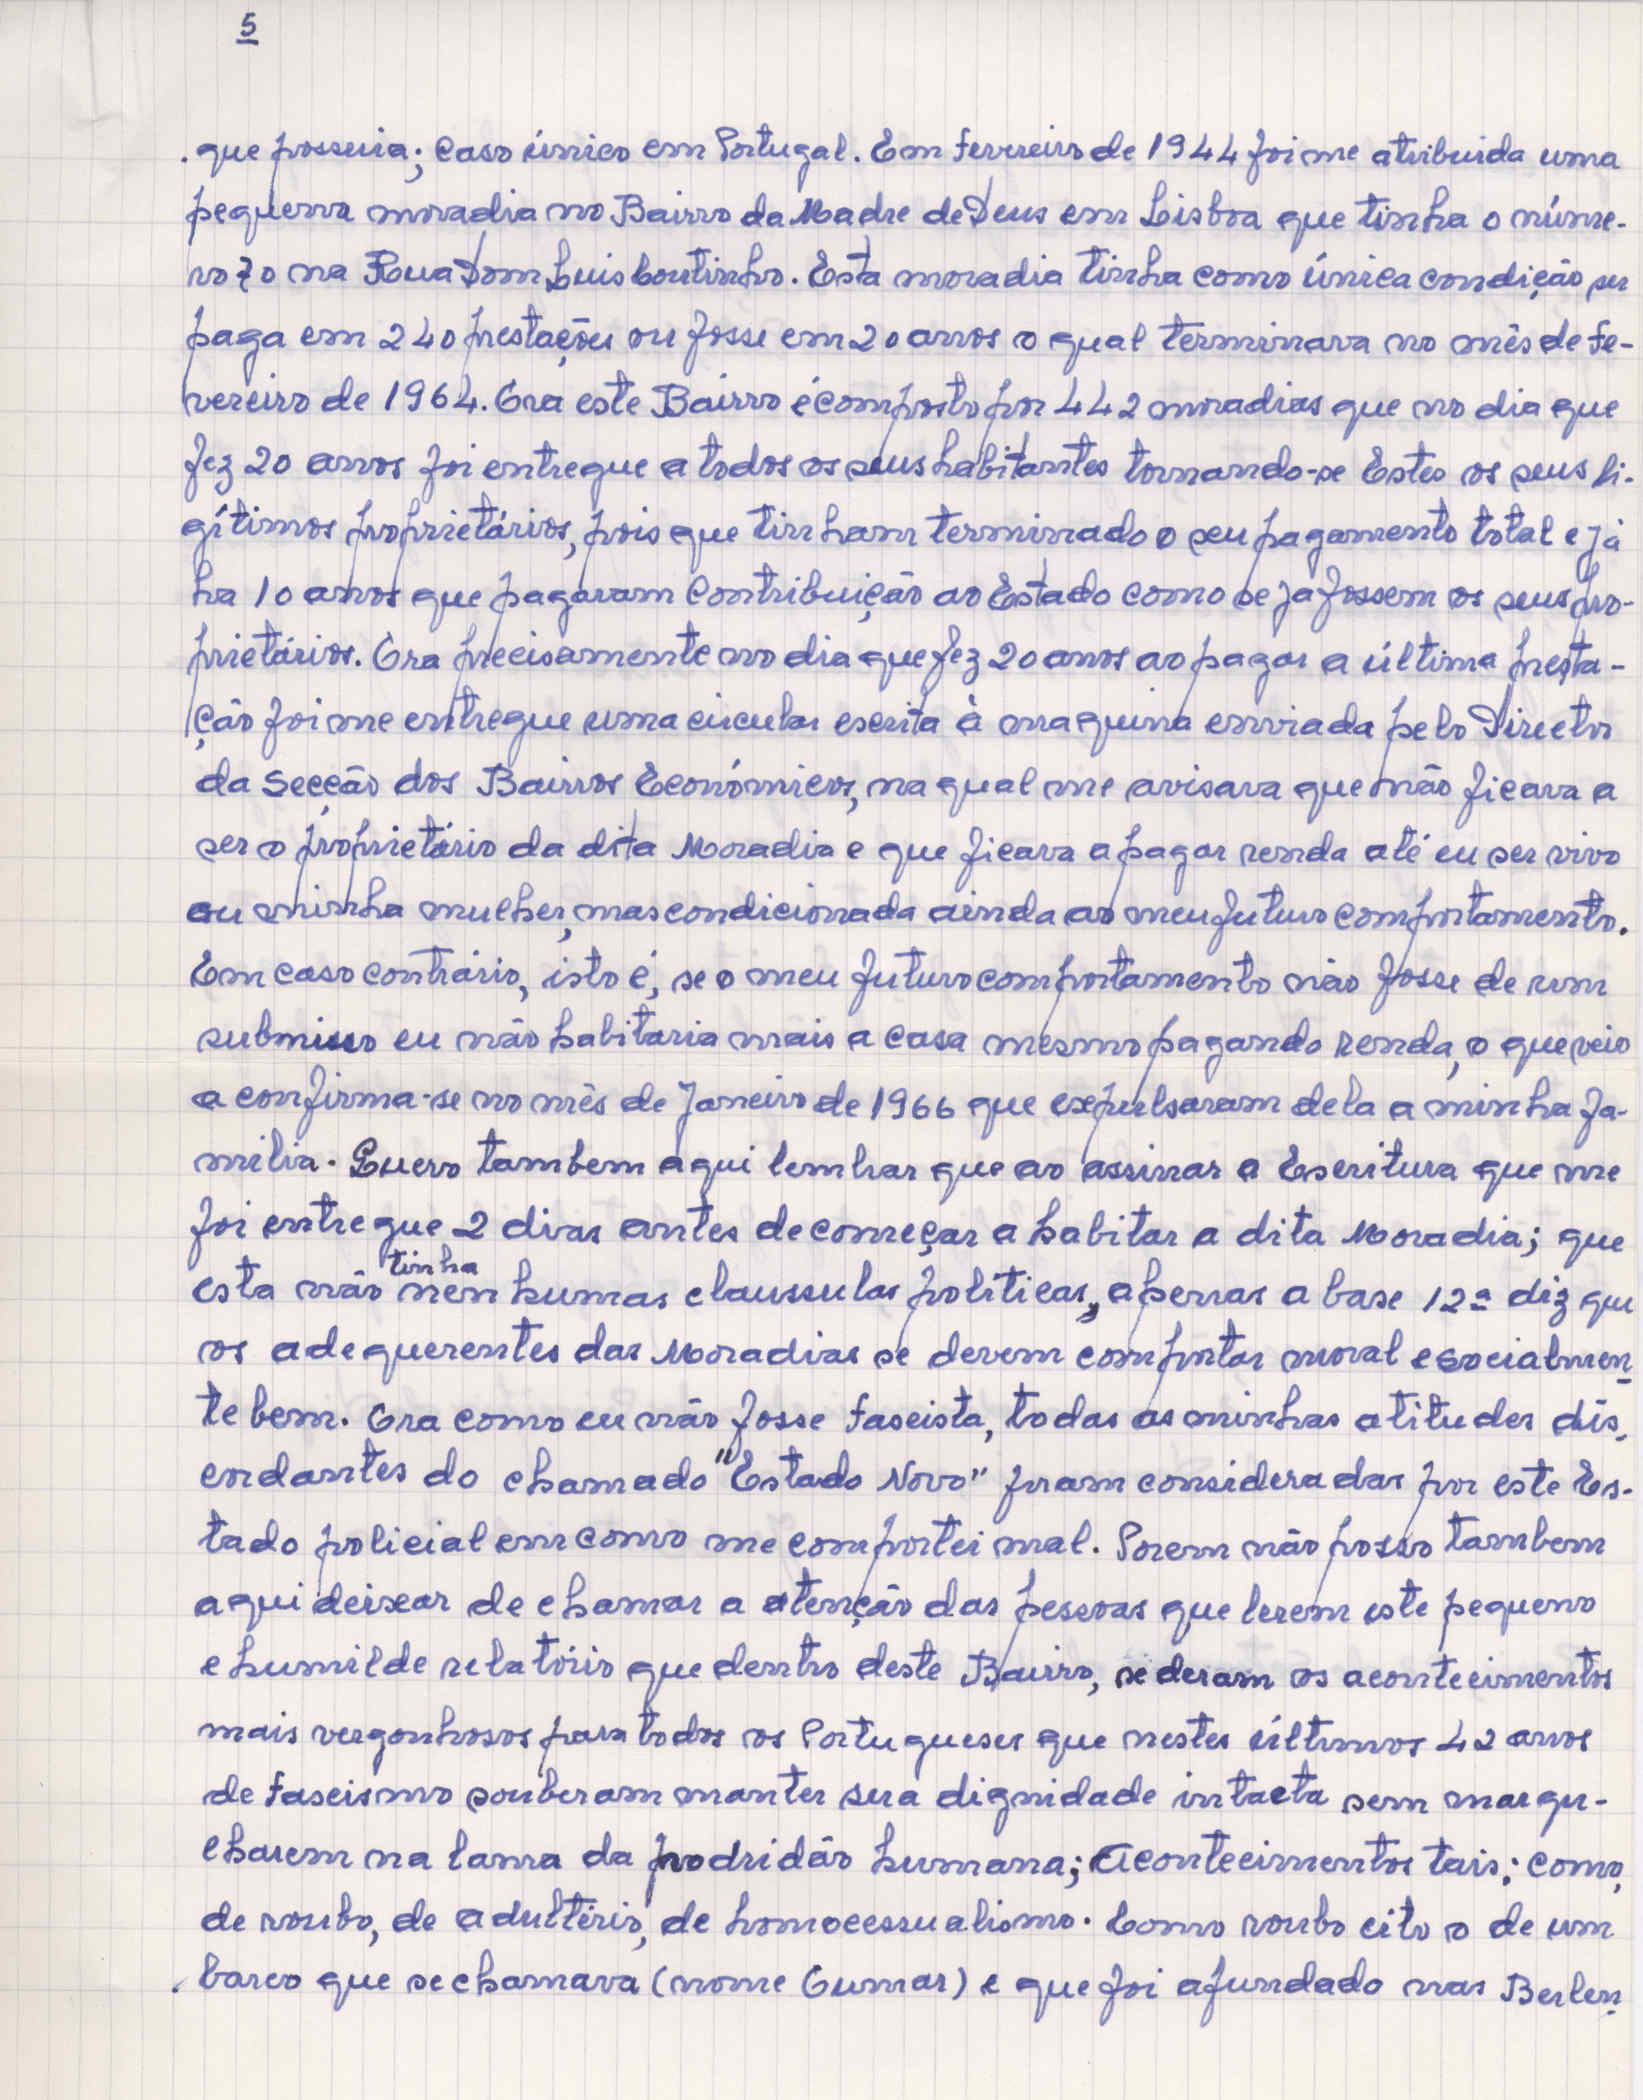 5
. que possuia; caso único em Portugal. Em fevereiro de 1944 foi me atribuida uma
pequena moradia no Bairro da Madre de Deus em Lisboa que tinha o núme-
ro 70 na Rua Dom Luis Coutinho. Esta moradia tinha como única condição ser
paga em 240 prestações ou fosse em 20 anos o qual terminava no mês de fe-
vereiro de 1964. Ora este Bairro é composto por 442 moradias que no dia que
fez 20 anos foi entregue a todos os seus habitantes tornando-se Estes os seus li-
gítimos proprietários, pois que tinham terminado o seu pagamento total e já
ha 10 anos que pagavam Contribuição ao Estado como se ja fossem os seus pro-
prietários. Ora precisamente no dia que fez 20 anos ao pagar a última presta-
ção foi me entregue uma circular escrita à maquina enviada pelo Director
da Secção dos Bairros Económicos, na qual me avisava que não ficava a
ser o proprietário da dita Moradia e que ficava a pagar renda até eu ser vivo
ou minha mulher, mas condicionada ainda ao meu futuro comportamento.
Em caso contrário, isto é, se o meu futuro comportamento não fosse de um
submisso eu não habitaria mais a casa mesmo pagando renda, o que veio
a confirma-se no mês de Janeiro de 1966 que expulsaram dela a minha fa-
milia. Quero tambem aqui lembrar que ao assinar a Escritura que me
foi entregue 2 dias antes de começar a habitar a dita Moradia; que
esta não tinha nenhumas claussulas políticas, apenas a base 12ª diz que
os adequerentes das Moradias se devem comportar moral e socialmen-
te bem. Ora como eu não fosse fascista, todas as minhas atitudes dís-
cordantes do chamado "Estado Novo" foram consideradas por este Es-
tado policial em como me comportei mal. Porem não posso tambem
aqui deixar de chamar a atenção das pessoas que lerem este pequeno
e humilde relatório que dentro deste Bairro, se deram os acontecimentos
mais vergonhosos para todos os Portugueses que nestes últimos 42 anos
de fascismo souberam manter sua dignidade intacta sem margu-
lharem na lama da podridão humana; Acontecimentos tais; como,
de roubo, de adultério, de homocessualismo. Como roubo cito o de um
. barco que se chamava (nome Gumar) e que foi afundado nas Berlen-